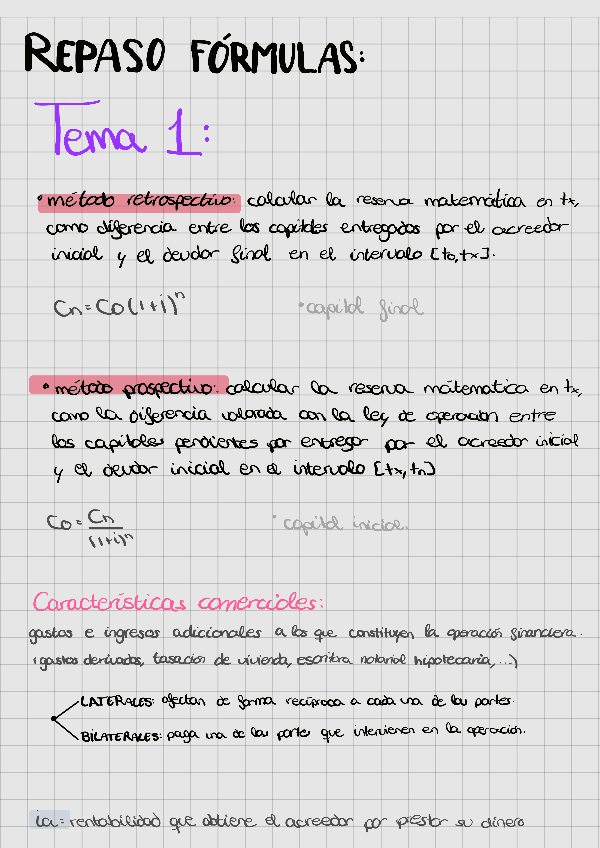 REPASO FÓRMULAS:
Tema 1:
• método retrospectivo: calcular la reserva matemática en tx,
como diferencia entre los capitales entregados por el acreedor
inicial y el deudor final en el intervalo [to,tx].
Cn = Co(1+i)^n •capital final
• método prospectivo: calcular la reserva matematica en tx,
como la diferencia valorada con la ley de operación entre
los capitales pendientes por entregar por el acreedor inicial
y el deudor inicial en el intervalo [tx,tn]
Co = Cn/(1+i)^n •capital inicial.
Características comerciales:
gastos e ingresos adicionales a los que constituyen la operación financiera.
(gastos derivados, tasación de vivienda, escritura notarial hipotecaria,...)
LATERALES: afectan de forma recíproca a cada una de las partes.
BILATERALES: paga una de las partes que intervienen en la operación.
ia = rentabilidad que obtiene el acreedor por prestar su dinero